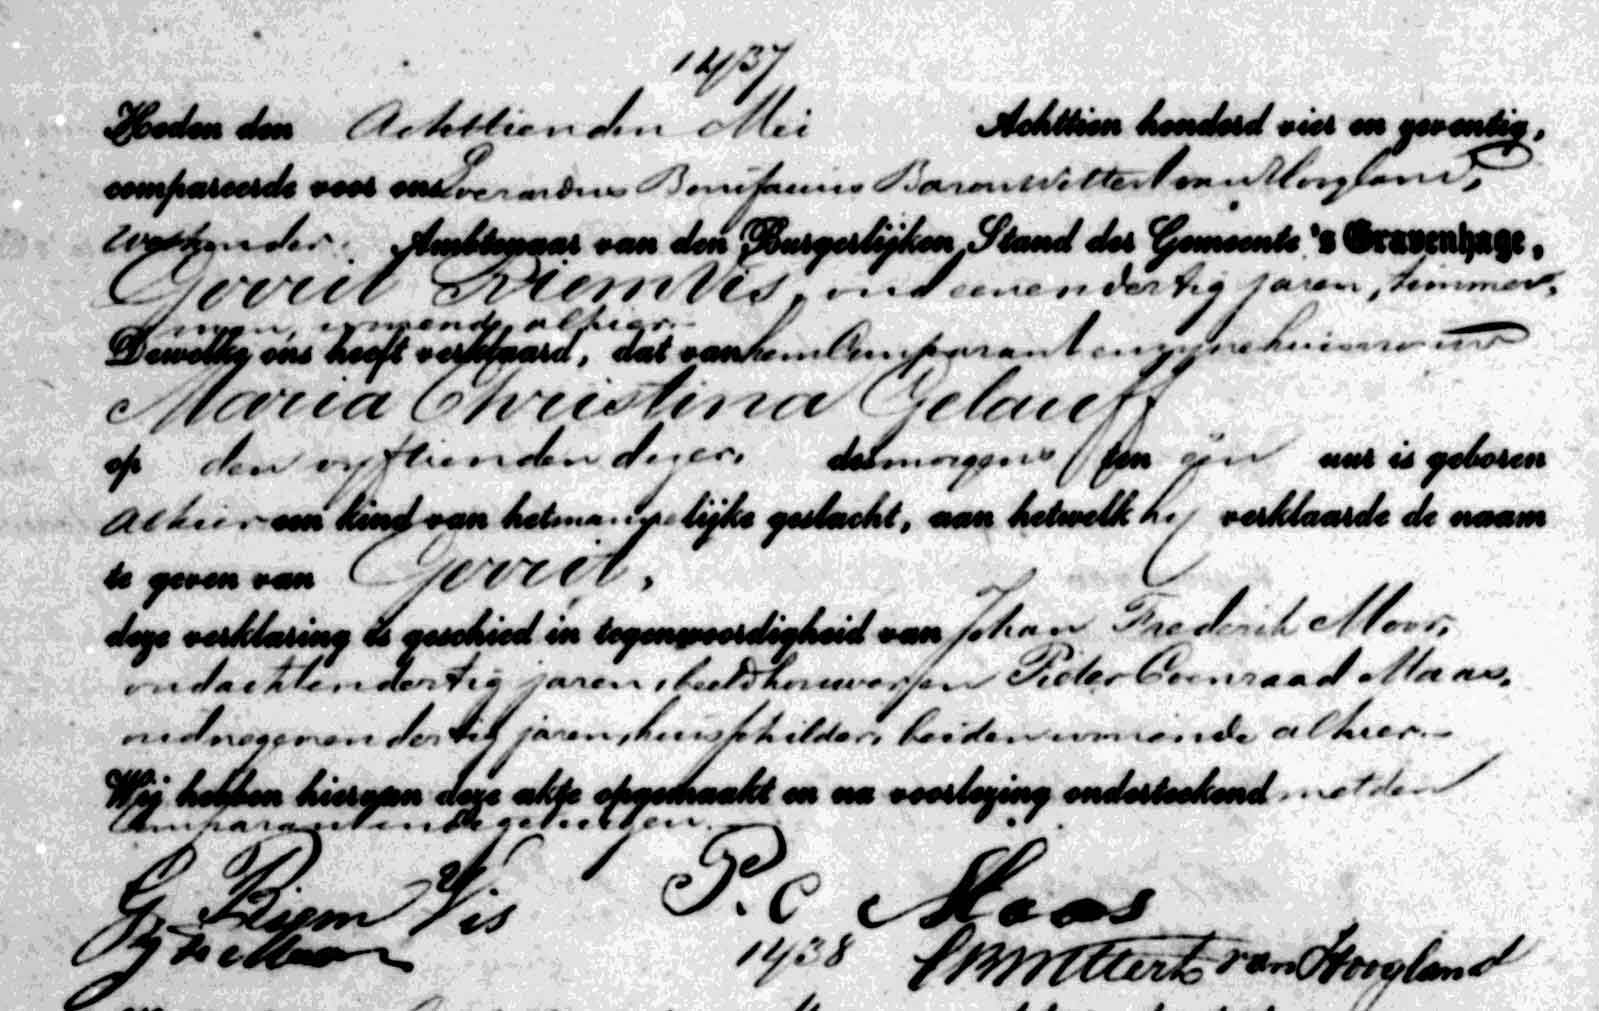 1437
Heden den Achttienden Mei Achttien honderd vier en zeventig,
compareerde voor ons Everardus Bonifacius Baron Wittert van Hoogland,
Wethouder. Ambtenaar van den Burgerlijken Stand der Gemeente 's Gravenhage,
Gerrit Riem Vis, oud eenendertig jaren, timmer-
man, wonende alhier.
Dewelke ons heeft verklaard, dat van hem Comparant en zijne huisvrouw
Maria Christina Gelauff
op den vyftienden dezer, des morgens ten één uur is geboren
alhier een kind van het mannelijke geslacht, aan hetwelk hy verklaarde de naam
te geven van Gerrit,
deze verklaring is geschied in tegenwoordigheid van Johan Frederik Moor,
oud achtendertig jaren, beeldhouwer, en Pieter Coenraad Maas,
oud negenendertig jaren, huisschilder, beiden wonende alhier.
Wij hebben hiervan deze akte opgemaakt en na voorlezing onderteekend met den
Comparant en de getuigen.
G. Riem Vis P. C Maas
1438 EBWittert van Hoogland